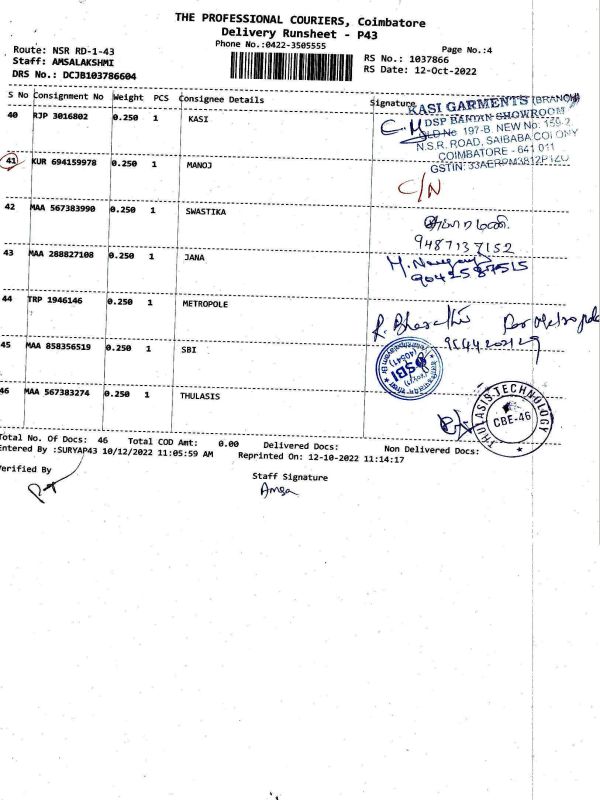 THE PROFESSIONAL COURIERS, Coimbatore
Delivery Runsheet - P43
Phone No.:0422-3505555
Page No.:4
Route: NSR RD-1-43
Staff: AMSALAKSHMI
DRS No.: DCJB103786604
RS No.: 1037866
RS Date: 12-Oct-2022
S No Consignment No Weight PCS Consignee Details Signature
40 RJP 3016802 0.250 1 KASI
KASI GARMENTS (BRANCH)
DSP BANIAN SHOWROOM
OLD No 197-B, NEW No: 159-2
N.S.R. ROAD, SAIBABA COLONY
COIMBATORE - 641 011
GSTIN: 33AERPM3812P1ZU
41 KUR 694159978 0.250 1 MANOJ
C/N
42 MAA 567383990 0.250 1 SWASTIKA
9487137152
43 MAA 288827108 0.250 1 JANA
44 TRP 1946146 0.250 1 METROPOLE
R. Bharathi
45 MAA 858356519 0.250 1 SBI
SBI
46 MAA 567383274 0.250 1 THULASIS
THULASIS TECHNOLOGY
CBE-46
Total No. Of Docs: 46 Total COD Amt: 0.00 Delivered Docs: Non Delivered Docs:
Entered By :SURYAP43 10/12/2022 11:05:59 AM Reprinted On: 12-10-2022 11:14:17
Verified By
Staff Signature
Amsa